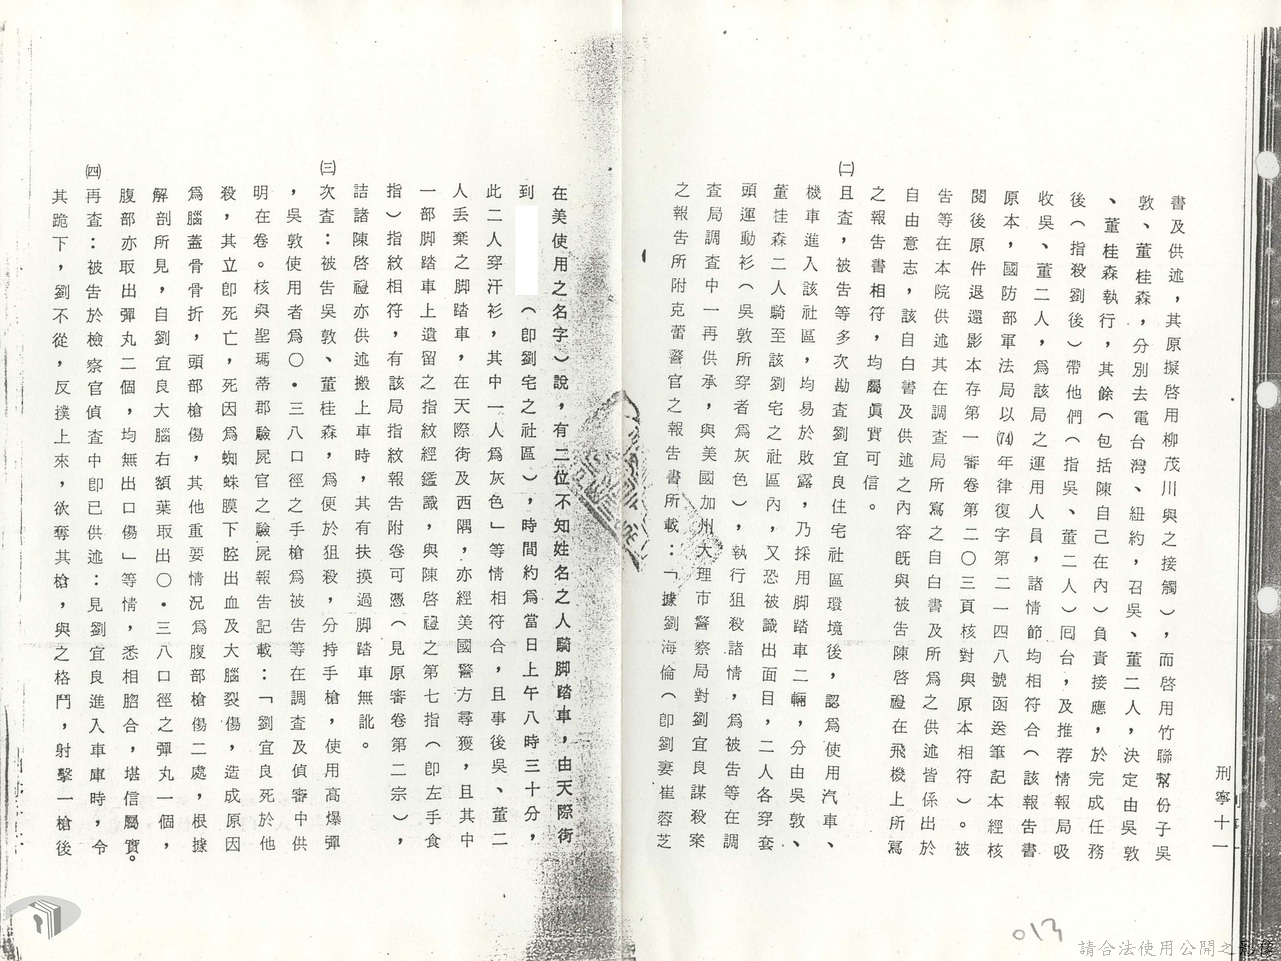 書及供述，其原擬啓用柳茂川與之接觸），而啓用竹聯幫份子吳
敦、董桂森，分別去電台灣、紐約，召吳、董二人，決定由吳敦
、董桂森執行，其餘（包括陳自己在內）負責接應，於完成任務
後（指殺劉後）帶他們（指吳、董二人）囘台，及推荐情報局吸
收吳、董二人，爲該局之運用人員，諸情節均相符合（該報告書
原本，國防部軍法局以(74)年律復字第二一四八號函送筆記本經核
閱後原件退還影本存第一審卷第二〇三頁核對與原本相符）。被
告等在本院供述其在調查局所寫之自白書及所爲之供述皆係出於
自由意志，該自白書及供述之內容旣與被告陳啓禮在飛機上所寫
之報告書相符，均屬眞實可信。
㈡且查，被告等多次勘查劉宜良住宅社區環境後，認爲使用汽車、
機車進入該社區，均易於敗露，乃採用脚踏車二輛，分由吳敦、
董桂森二人騎至該劉宅之社區內，又恐被識出面目，二人各穿套
頭運動衫（吳敦所穿者爲灰色），執行狙殺諸情，爲被告等在調
查局調查中一再供承，與美國加州大理市警察局對劉宜良謀殺案
之報告所附克蕾警官之報告書所載：「據劉海倫（卽劉妻崔蓉芝
在美使用之名字）說，有二位不知姓名之人騎脚踏車，由天際街
到（卽劉宅之社區），時間約爲當日上午八時三十分，
此二人穿汗衫，其中一人爲灰色」等情相符合，且事後吳、董二
人丟棄之脚踏車，在天際街及西隅，亦經美國警方尋獲，且其中
一部脚踏車上遺留之指紋經鑑識，與陳啓禮之第七指（卽左手食
指）指紋相符，有該局指紋報告附卷可憑（見原審卷第二宗），
詰諸陳啓禮亦供述搬上車時，其有扶摸過脚踏車無訛。
㈢次查：被告吳敦、董桂森，爲便於狙殺，分持手槍，使用高爆彈
，吳敦使用者爲〇・三八口徑之手槍爲被告等在調查及偵審中供
明在卷。核與聖瑪蒂郡驗屍官之驗屍報告記載：「劉宜良死於他
殺，其立卽死亡，死因爲蜘蛛膜下腔出血及大腦裂傷，造成原因
爲腦蓋骨骨折，頭部槍傷，其他重要情況爲腹部槍傷二處，根據
解剖所見，自劉宜良大腦右額葉取出〇・三八口徑之彈丸一個，
腹部亦取出彈丸二個，均無出口傷」等情，悉相脗合，堪信屬實。
㈣再查：被告於檢察官偵查中卽已供述：見劉宜良進入車庫時，令
其跪下，劉不從，反撲上來，欲奪其槍，與之格鬥，射擊一槍後
刑寧十一
013
請合法使用公開之影像